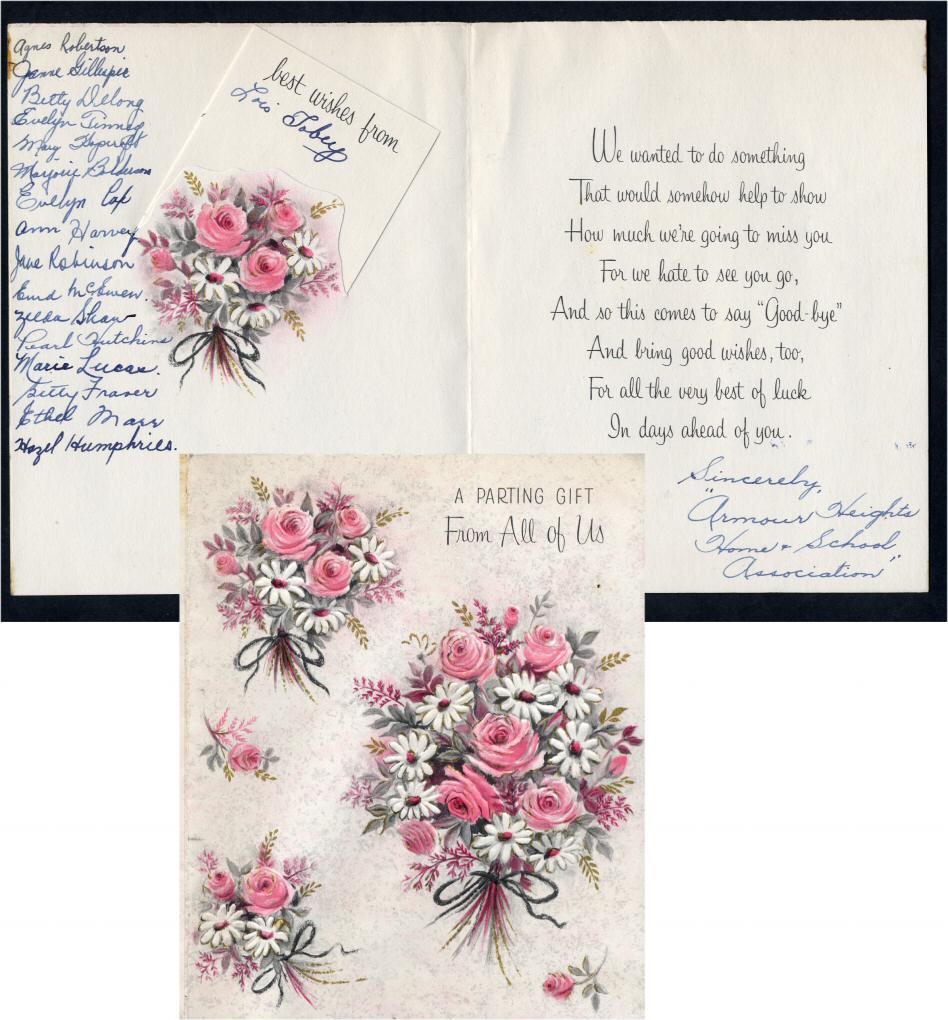 Agnes Robertson
Jane Gillespie
Betty Delong
Evelyn Tinney
Mary Hopcroft
Marjorie
Evelyn
Ann Harvey
Jane Robinson
Enid McEwen.
Zelda Shaw
Pearl Hutchins
Marie Lucas.
Betty Fraser
Ethel Marr
Hazel Humphries.
best wishes from
Lois Tobey
We wanted to do something
That would somehow help to show
How much we're going to miss you
For we hate to see you go,
And so this comes to say "Good-bye"
And bring good wishes, too,
For all the very best of luck
In days ahead of you.
Sincerely,
"Armour Heights
Home & School
Association"
A PARTING GIFT
From All of Us